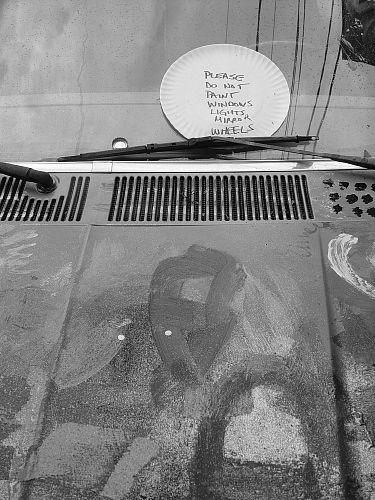 PLEASE
DO NOT
PAINT
WINDOWS
LIGHTS
MIRROR
WHEELS